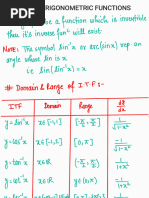 TRIGONOMETRIC FUNCTIONS
be a function which is invertible
thus it's inverse funⁿ will exist.
Note: The symbol sin⁻¹x or arc(sinx) rep an
angle whose sin is x
i.e sin(sin⁻¹x) = x
# Domain & Range of I.T.F :-
ITF Domain Range dy/dx
y = sin⁻¹x x∈[-1,1] [-π/2, π/2] 1/√(1-x²)
x∈[-1,1] [0,π] -1/√(1-x²)
y = tan⁻¹x x∈R 1/(1+x²)
x∈R (0,π) -1/(1+x²)